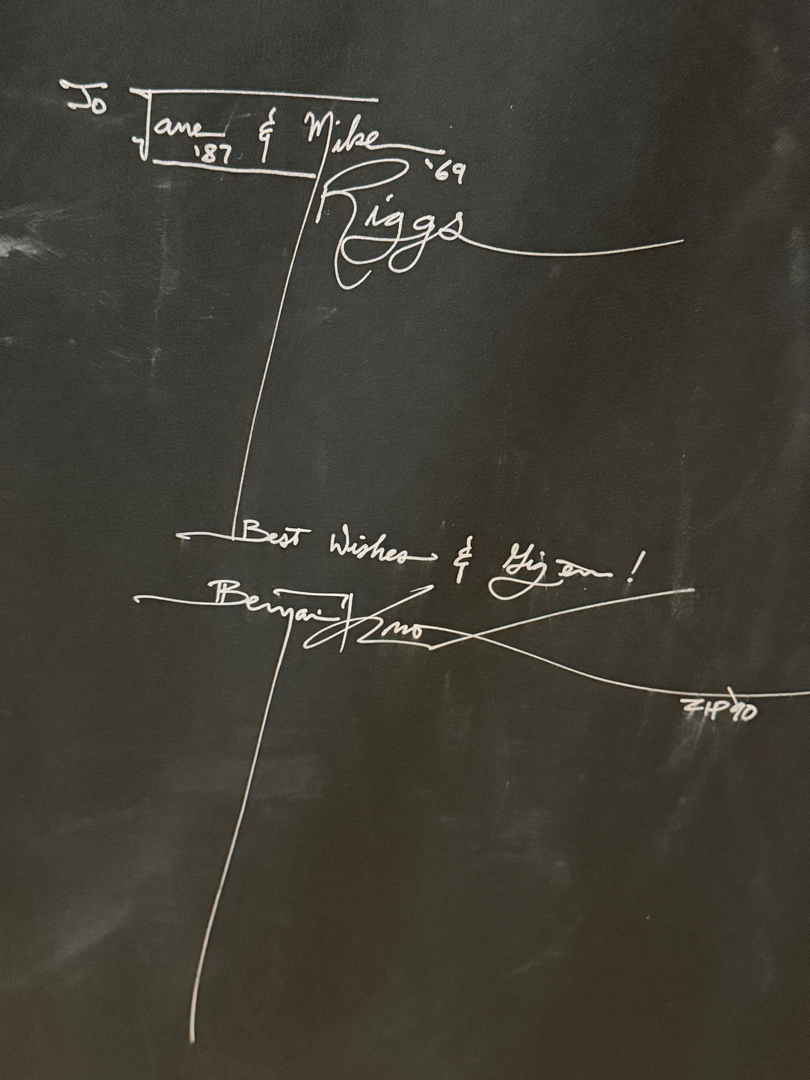 To Jane & Mike
'87 '69
Riggs
Best Wishes & Gig'em!
Benjamin Knox
ZIP '90